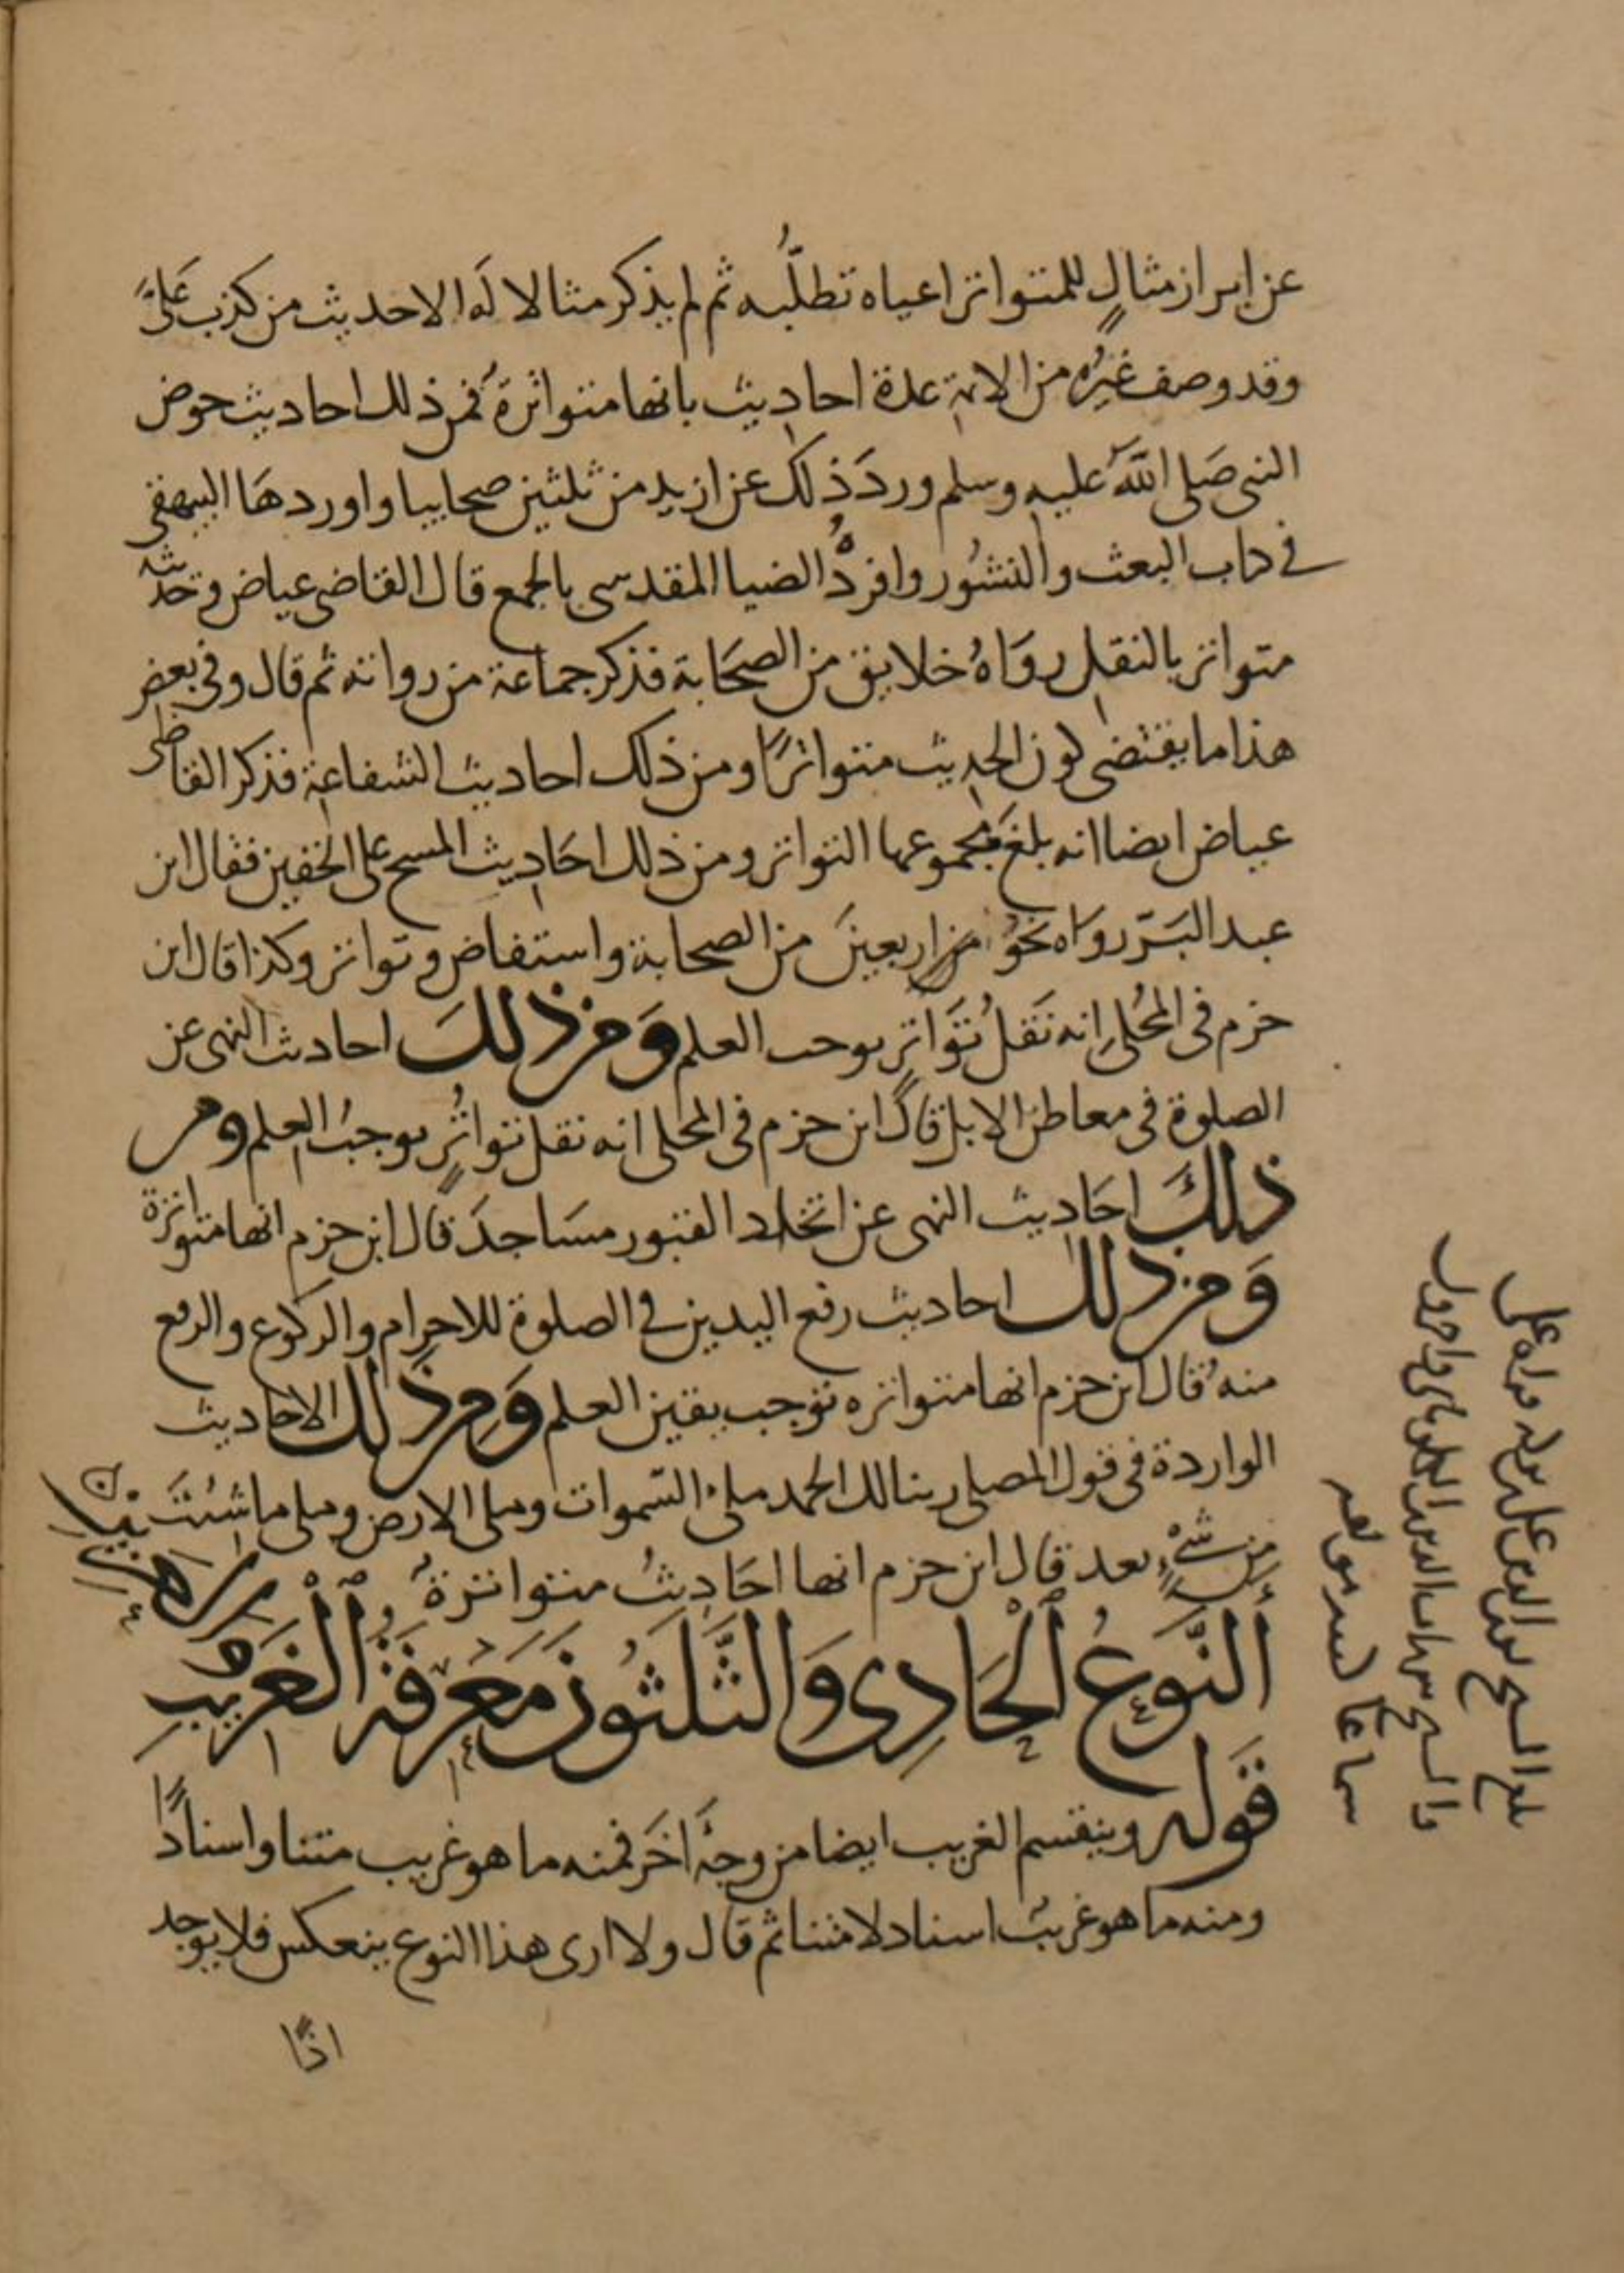 عن ابراز مثالٍ للمتواتر اعياه تطلّبُه ثم لم يذكر مثالا لَه الا حديث من كذب عَليَّ
وقد وصف غيرُه من الايمة عدة احاديث بانها متواترة فمن ذلك احاديث حوض
النبى صَلى اللّه عليه وسلم وردَ ذلك عن ازيد من ثلثين صحابيا واوردهَا البيهقى
فى كتاب البعث والنشُور وافردَهُ الضيا المقدسى بالجمع قال القاضى عياض وحديثه
متواتر بالنقل روَاهُ خلايق من الصحَابة فذكر جماعة من رواته ثم قال وفى بعض
هذا ما يقتضى كون الحديث متواترًا ومن ذلك احاديث الشفاعة فذكر القاضى
عياض ايضا انه بلغ مجموعها التواتر ومن ذلك احَاديث المسح على الخفين فقال ابن
عبد البَرّ روَاه نحوُ من اربعينَ من الصحابة واستفاض وتواتر وكذا قال ابن
حزم فى المُحلى انه نَقلُ تَوَاترٍ يوجب العلم وَمن ذلكَ احاديث النهى عن
الصلوة فى معاطن الابل قالَ ابن حزم فى المحلى انه نقل تواتُرٍ يوجبُ العلم ومن
ذلكَ احَاديث النهى عن اتخاذ القبور مسَاجدَ قال ابن حزم انها متواترة
وَمن ذلك احاديث رفع اليدين فى الصلوة للاحرام والركوع والرفع
منه قال ابن حزم انها متواتره توجب يقين العلم وَمن ذلك الاحاديث
الواردة فى قول المصلى ربنا لك الحمد ملئ السّموات وملى الارض وملى ما شئتَ
مِن شَىْءٍ بعد قال ابن حزم انها احَاديثُ متواترة
اَلنَّوعُ الْحَادِى وَالثَّلثُونَ مَعْرِفَةُ الْغَرِيبِ وَالْعَزِيزِ
قَوله وينقسم الغريب ايضا من وجهٍ اخَر فمنه ما هو غريب متنا واسنادًا
ومنه ما هو غريبٌ اسنادا لا متنا ثم قال ولا ارى هذا النوع ينعكس فلا يوجد
اذًا